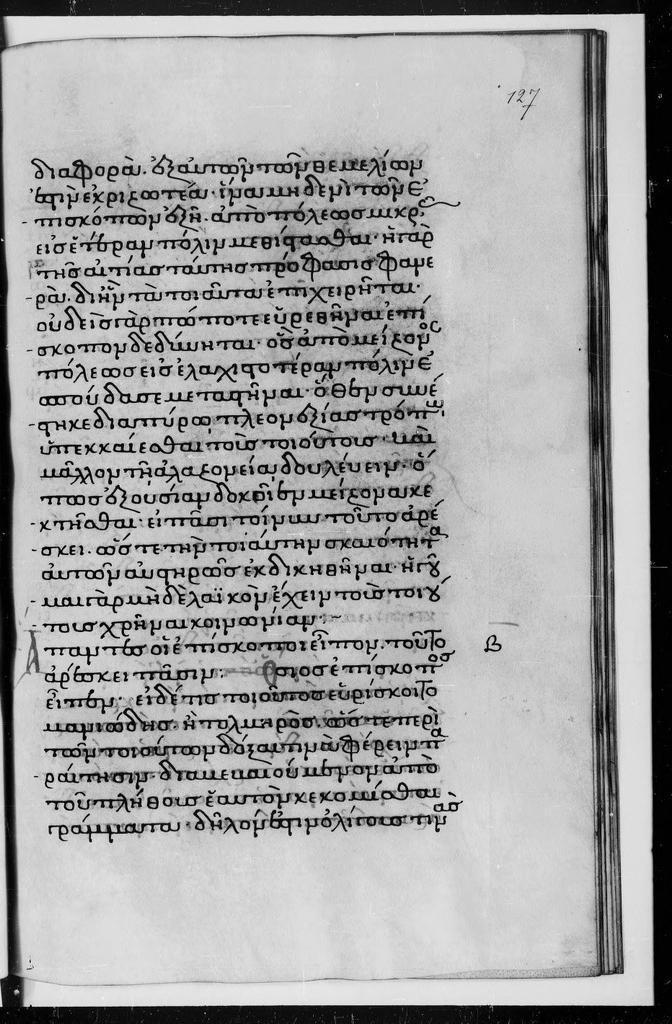 127
διαφορὰ. ἐξ αὐτῶν τῶν θεμελίων
ἐστὶν ἐκριζωτέα· ἵνα μηδενὶ τῶν ἐ
πισκόπων ἐξῆ ἀπὸ πόλεως μικρ
εἰς ἑτέραν πόλιν μεθίστασθαι· ἡ γὰρ
τῆς αἰτίας ταύτης πρόφασις φανε
ρὰ. δι ἣν τὰ τοιαῦτα ἐπιχειρῆται·
οὐδεὶς γὰρ πώποτε εὑρεθῆναι ἐπί
σκοπον δεδύνηται· ὃς ἀπὸ μείζονος
πόλεως εἰς ἐλαχιστοτέραν πόλιν ἐ
σπούδασε μεταστῆναι· ὅθεν συνέ
στηκε διαπύρω πλεονεξίας τρόπω
ὑπεκκαίεσθαι τοὺς τοιούτους· καὶ
μᾶλλον τῆ ἀλαζονεία δουλεύειν· ὅ
πως ἐξουσίαν δοκοῖεν μείζονα κε
κτῆσθαι· εἰ πᾶσι τοίνυν τοῦτο ἀρέ
σκει. ὥστε τὴν τοιαύτην σκαιότητα
αὐτῶν αὐστηρῶς ἐκδικηθῆναι· ἡγοῦ
μαι γὰρ μὴ δὲ λαϊκὸν ἔχειν τοὺς τοιού
τους χρῆναι κοινωνίαν:~
Ἅπαντες οἱ ἐπίσκοποι εἶπον. τοῦτο
ἀρέσκει πᾶσιν: Ὅσιος ἐπίσκοπος
εἶπεν· εἰ δέ τις τοιοῦτος εὑρίσκοιτο
μανιώδης. ἢ τολμηρὸς. ὥστε περὶ
τῶν τοιούτων δόξαν τινὰ φέρειν πα
ραίτησιν. διαβεβαιούμενον ἀπὸ
τοῦ πλήθους ἑαυτὸν κεκομίσθαι
γράμματα· δῆλόν ἐστιν ὀλίγους τινὰς
β